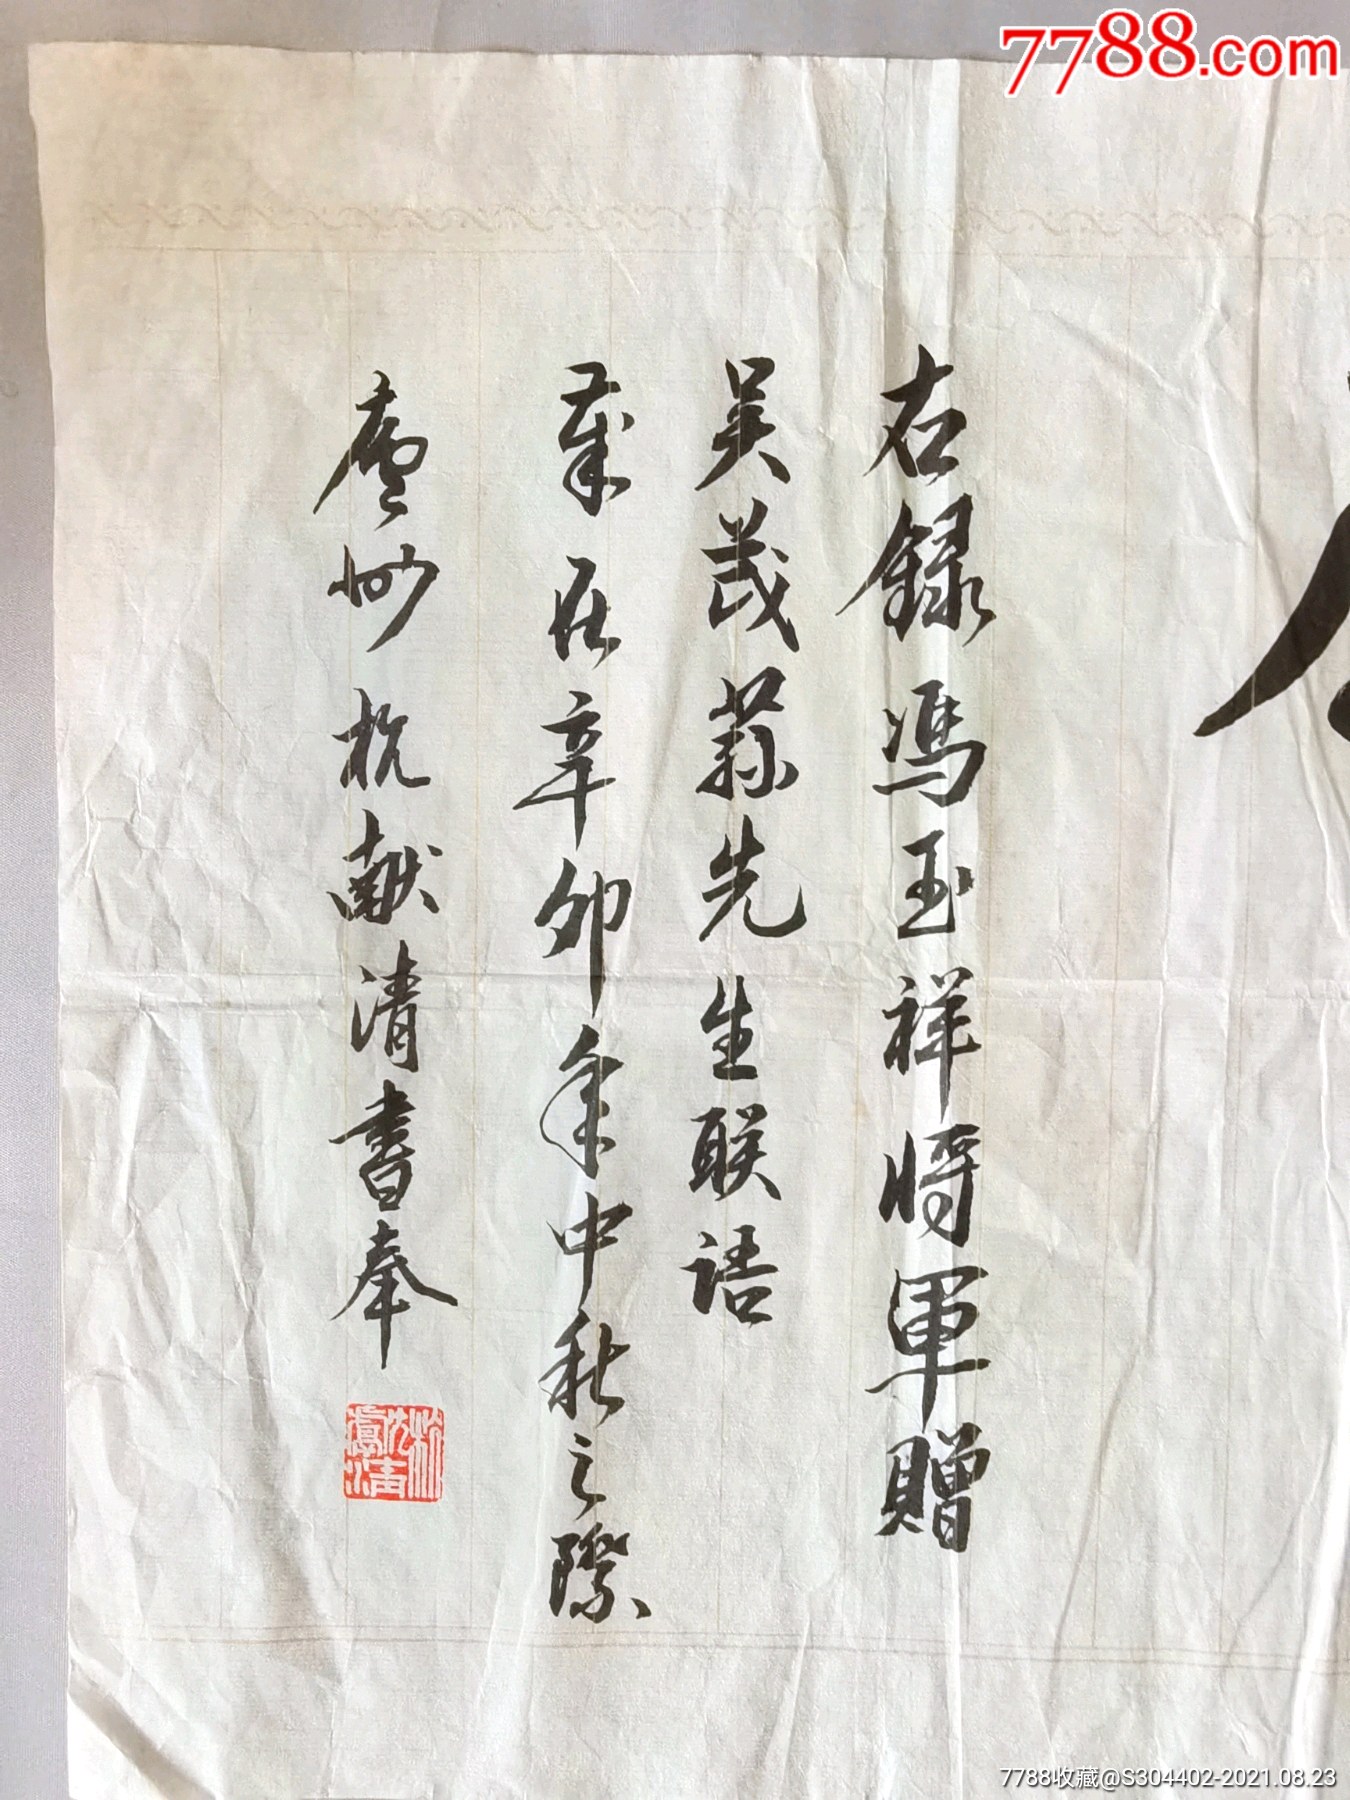 7788.com
右録馮玉祥将軍贈
吴茂蓀先生联语
歲在辛卯年中秋之際
廬州杭献清書奉
7788收藏@S304402-2021.08.23